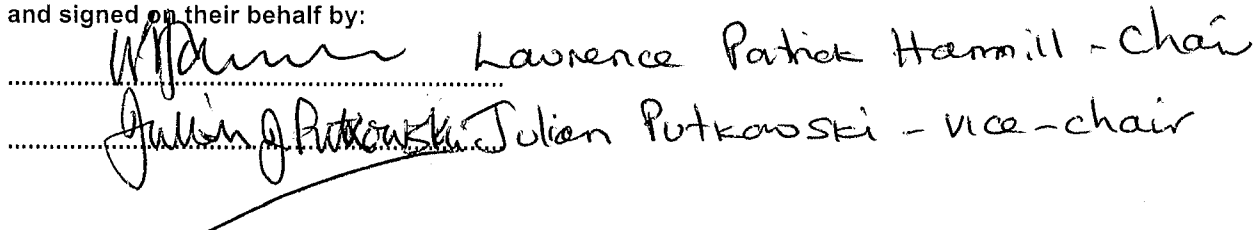 and signed on their behalf by:
Lawrence Patrick Hammill - Chair
Julian J Putkowski Julian Putkowski - vice-chair